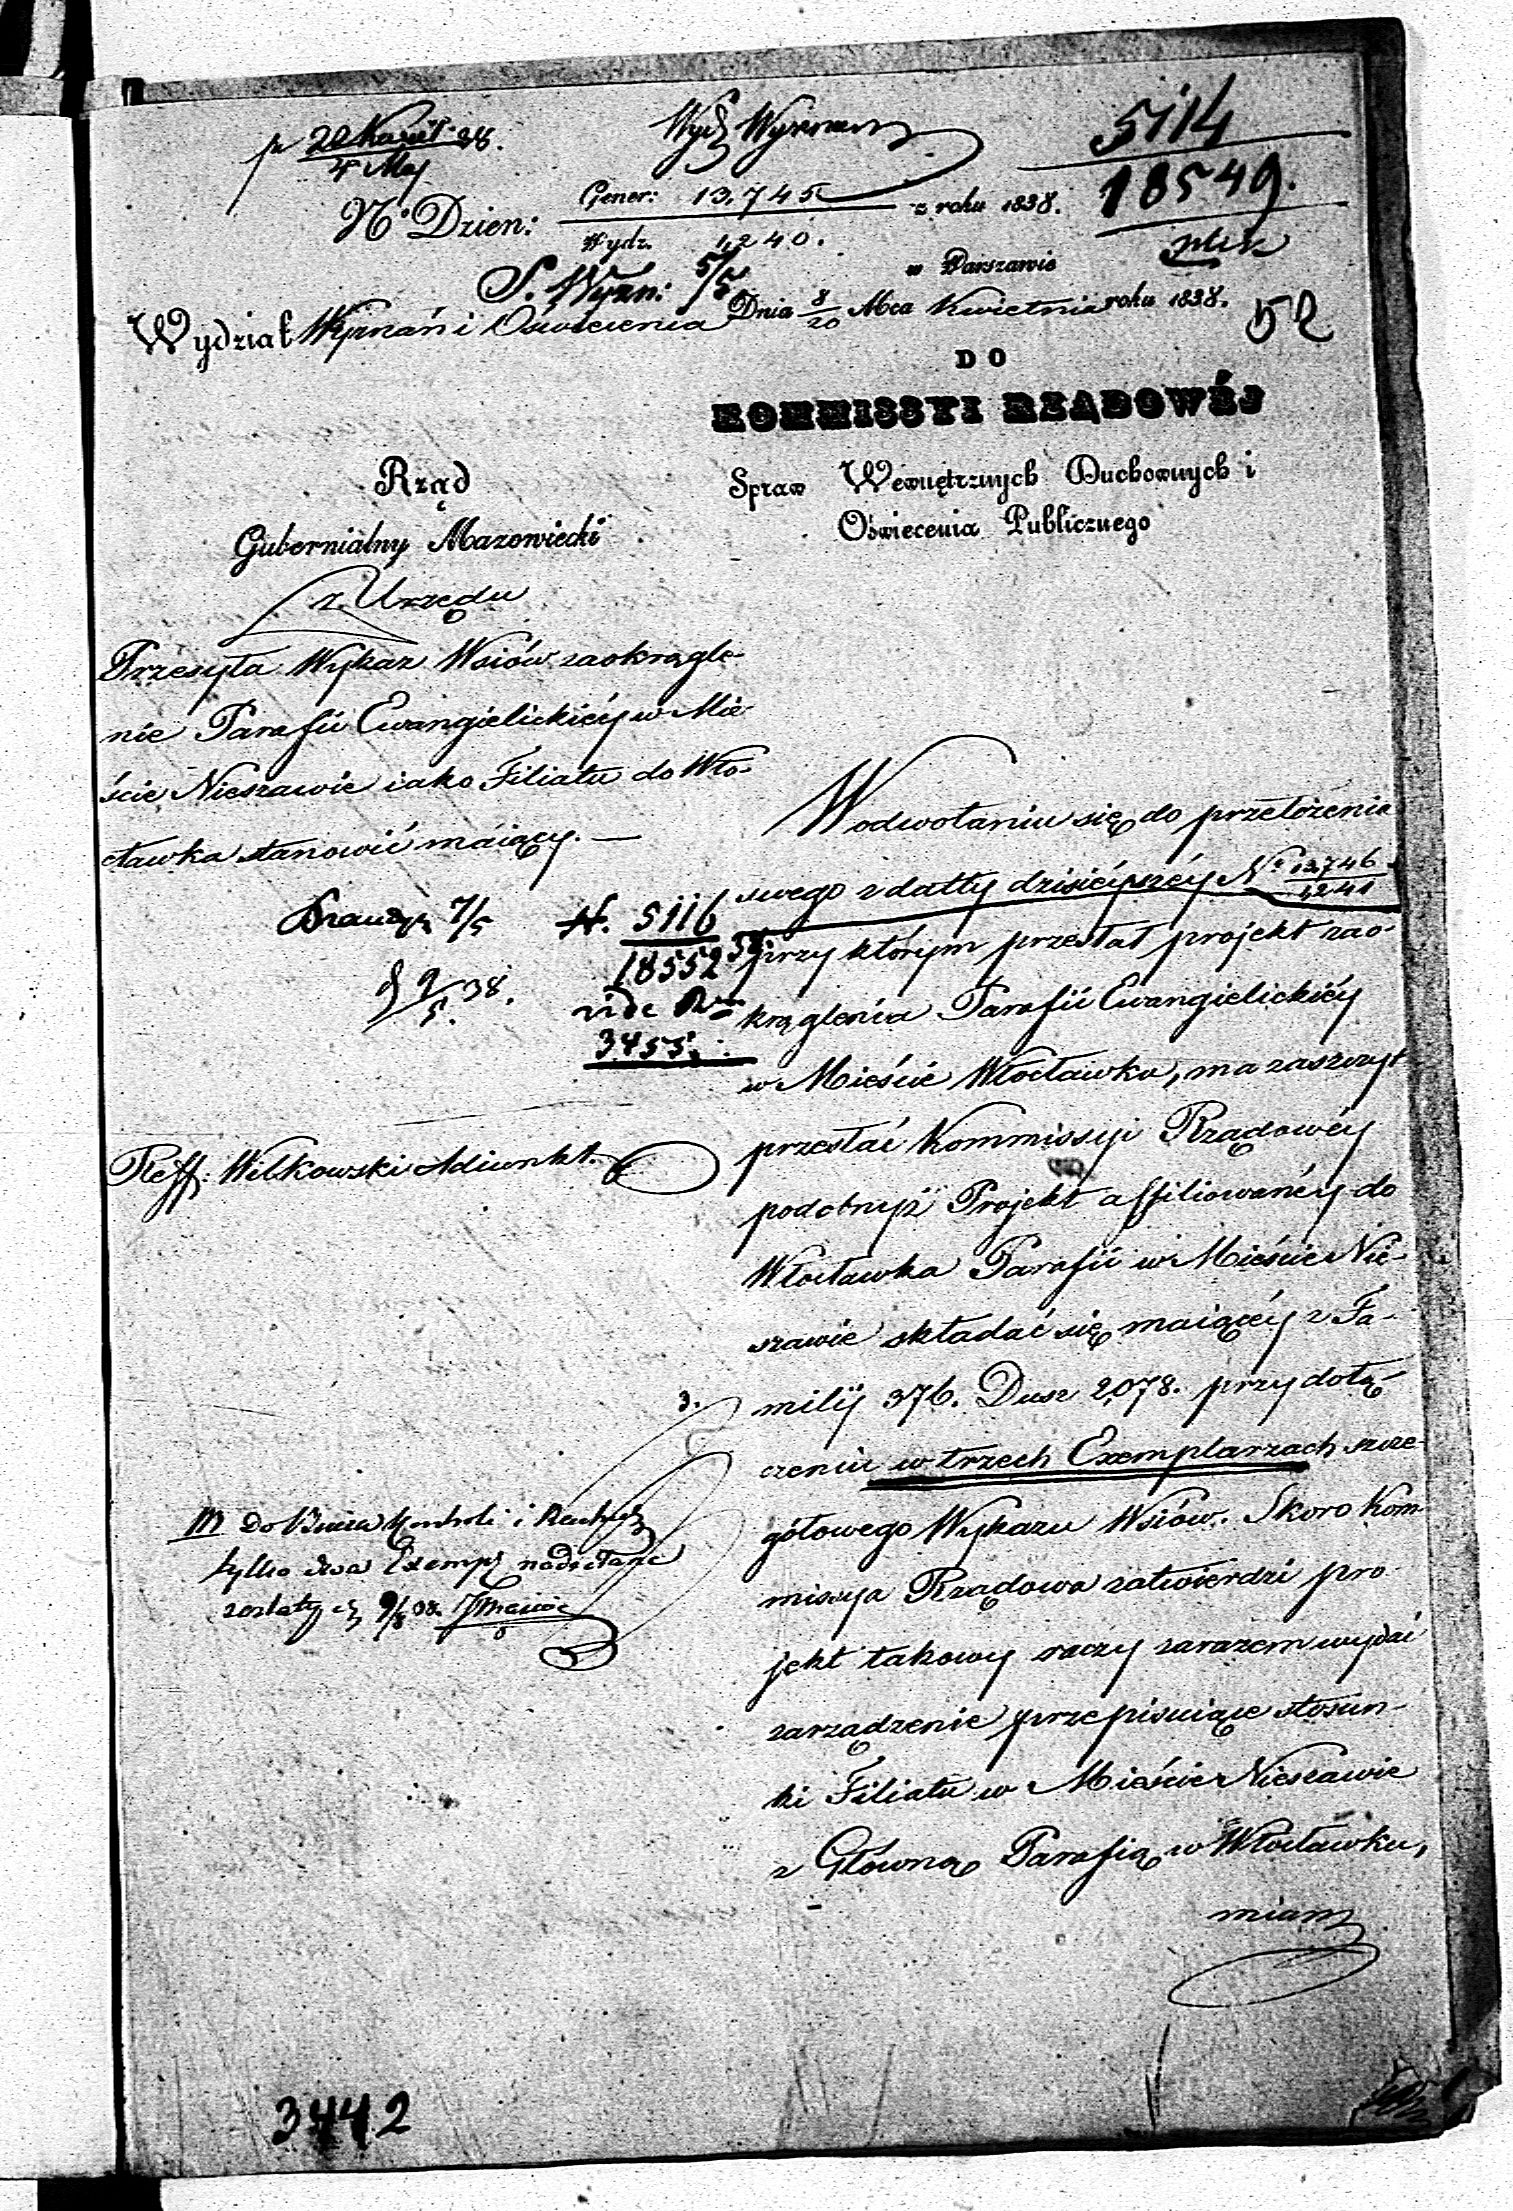 22 Kwiet. 38.
4 Maj
Wydz Wyznań
5114
18549.
No. Dzien: Gener: 13,745 z roku 1838.
Wydz. 1,240.
S. Wyzn: 5/5
w Warszawie
Wydział Wyznań i Oświecenia Dnia 8/20 Mca Kwietnia roku 1838.
52
DO
KOMMISSYI RZĄDOWÉJ
Spraw Wewnętrznych Duchownych i
Oświecenia Publicznego
Rząd
Gubernialny Mazowiecki
z Urzędu
Przesyła Wykaz Wsiów zaokrągle-
nie Parafii Ewangielickiéy w Mie-
ście Nieszawie iako Filiału do Wło-
cławka stanowić maiący. —
7/5
N. 5116
18552
vide
3455.
9/5 38.
Reff: Wilkowski Adiunkt.
W odwołaniu się do przełożenia
swego z datty dzisiéyszéy No 13,746
1,241
przy którym przesłał projekt zao-
krąglenia Parafii Ewangielickiéy
w Mieście Włocławku, ma zaszczyt
przesłać Kommissyi Rządowéy
podobnyż Projekt affiliowanéy do
Włocławka Parafii w Mieście Nie-
szawie składać się maiącéy z Fa-
milij 376. Dusz 2,078. przy dołą-
czeniu w trzech Exemplarzach szcze-
gółowego Wykazu Wsiów. Skoro Kom-
missya Rządowa zatwierdzi pro-
jekt takowy raczy zarazem wydać
zarządzenie przepisuiące stosun-
ki Filiału w Mieście Nieszawie
z Główną Parafią w Włocławku,
miam
3.
Do Biura Kontroli i
tylko dwa Exempl nadesłane
zostały 9/8 38.
3442